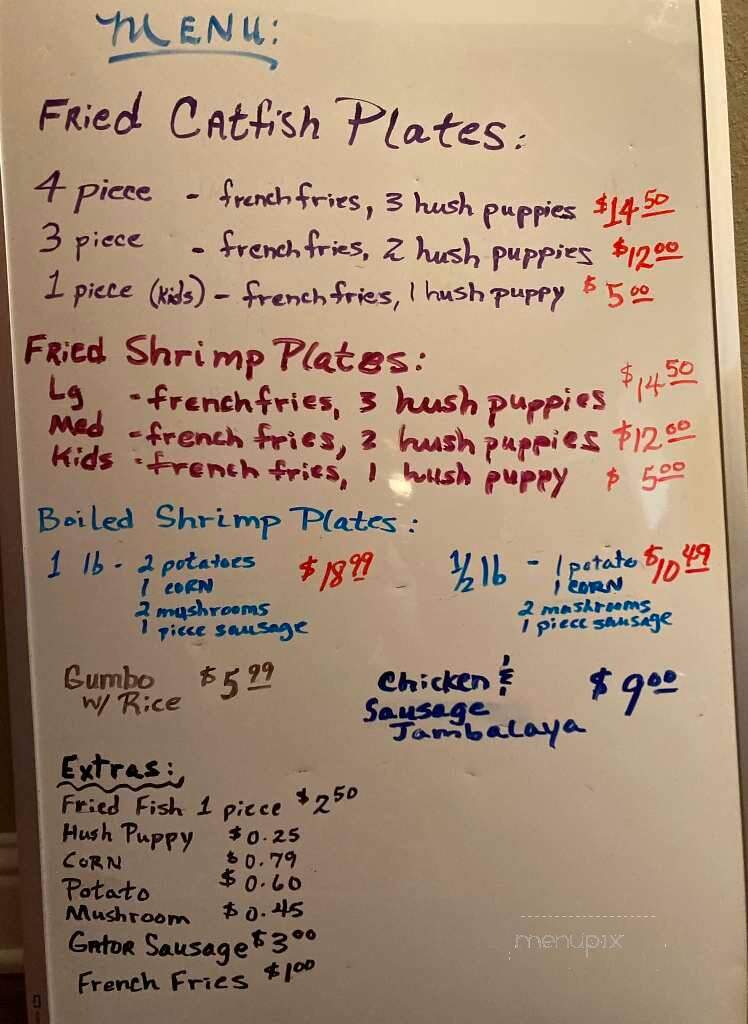 MENU:
Fried Catfish Plates:
4 piece - french fries, 3 hush puppies $14.50
3 piece - french fries, 2 hush puppies $12.00
1 piece (kids) - french fries, 1 hush puppy $5.00
Fried Shrimp Plates:
Lg - french fries, 3 hush puppies $14.50
Med - french fries, 2 hush puppies $12.00
Kids - french fries, 1 hush puppy $5.00
Boiled Shrimp Plates:
1 lb - 2 potatoes $18.99
1 corn
2 mushrooms
1 piece sausage
1/2 lb - 1 potato $10.49
1 corn
2 mushrooms
1 piece sausage
Gumbo $5.99
w/ Rice
Chicken & $9.00
Sausage
Jambalaya
Extras:
Fried Fish 1 piece $2.50
Hush Puppy $0.25
Corn $0.79
Potato $0.60
Mushroom $0.45
Gator Sausage $3.00
French Fries $1.00
menupix